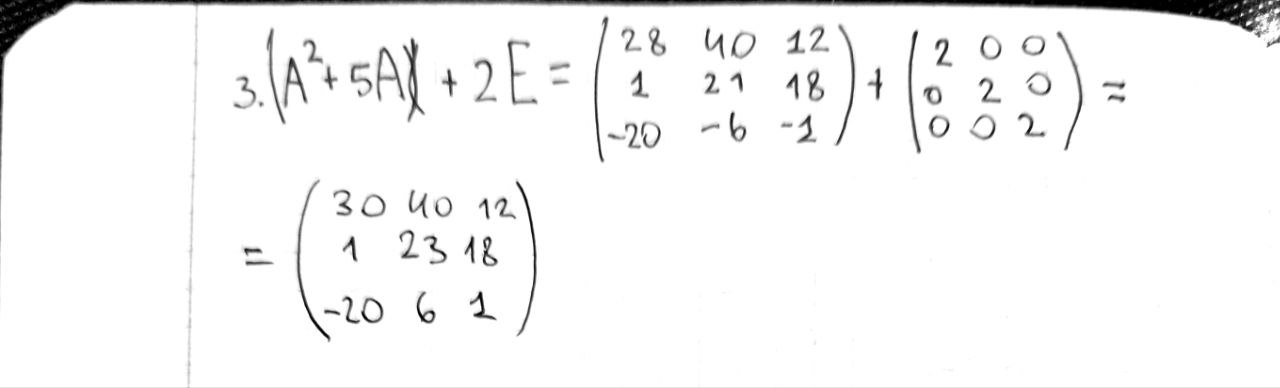 3. (A²+5A) + 2E = (28 40 12 1 21 18 -20 -6 -1) + (2 0 0 0 2 0 0 0 2) =
= (30 40 12 1 23 18 -20 6 1)